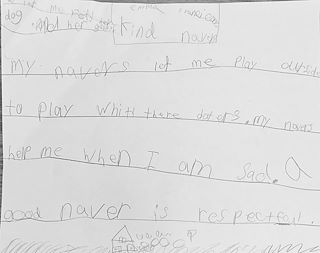 let me pet
dog. And her
Kind naver
my navers let me play outside
to play whith there dotors. my navers
help me when I am sad. a
good naver is respectfull.